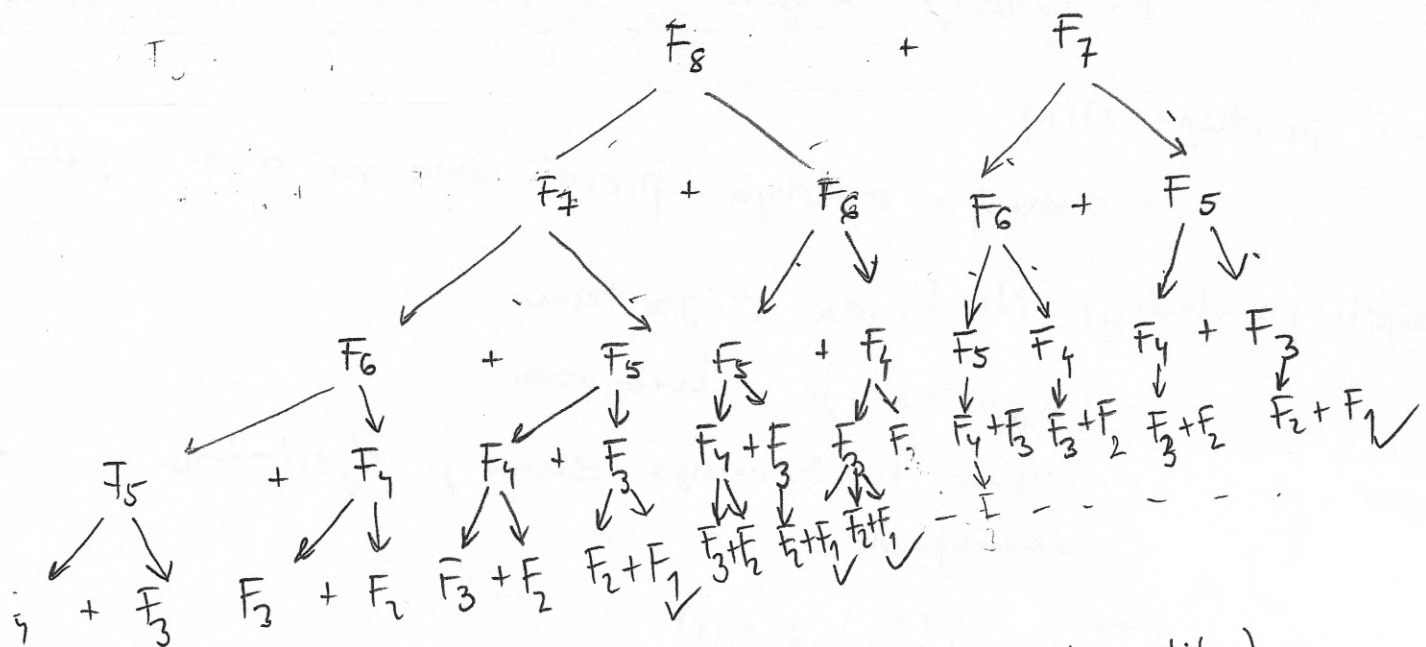 F₈ + F₇
F₇ + F₆ F₆ + F₅
F₆ + F₅ F₅ + F₄ F₅ F₄ F₄ + F₃
F₅ + F₄ F₄ + F₃ F₄ + F₃ F₃ F₂ F₄ + F₃ F₃ + F₂ F₃ + F₂ F₂ + F₁ ✓
+ F₃ F₃ + F₂ F₃ + F₂ F₂ + F₁ ✓ F₃ + F₂ F₂ + F₁ ✓ F₂ + F₁ ✓ - F₃ - - - -